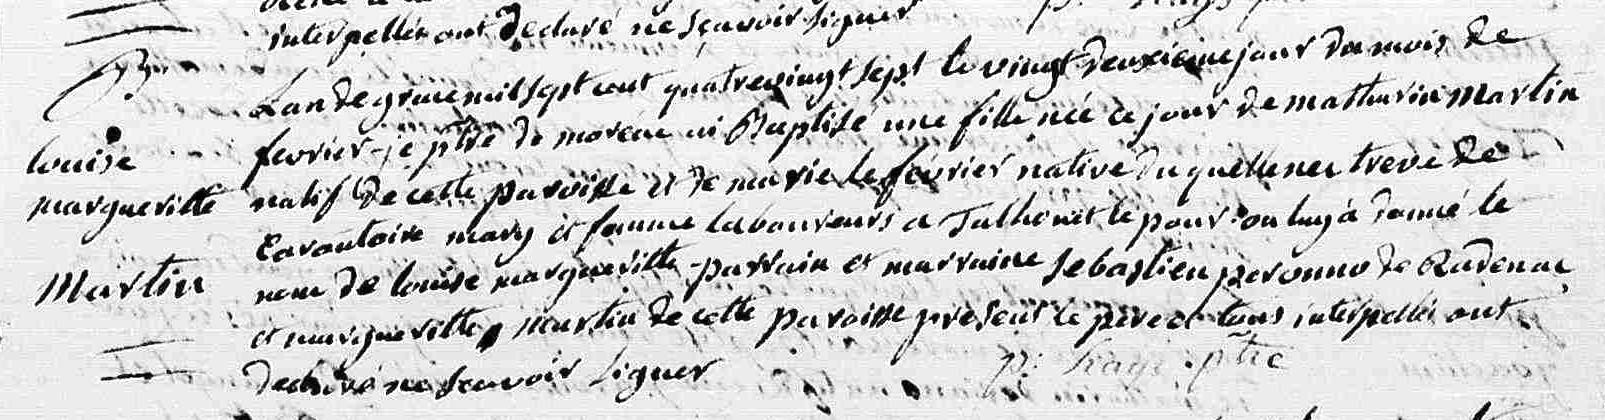 interpellés ont declaré ne sçavoir signer
B
Lan de grace mil sept cent quatrevingt sept le vingt deuxieme jour du mois de
fevrier je ptre de moréac ai Baptisé une fille née ce jour de mathurin Martin
louise
margueritte
Martin
natif de cette paroisse et de marie le février native du quellenec treve de
mary et femme laboureurs a Talhoüet le pour on luy a donné le
nom de louise margueritte parrain et marraine Sebastien peronno de Radenac
et margueritte martin de cette paroisse present le pere tous interpellés ont
declaré ne scavoir signer
ptre